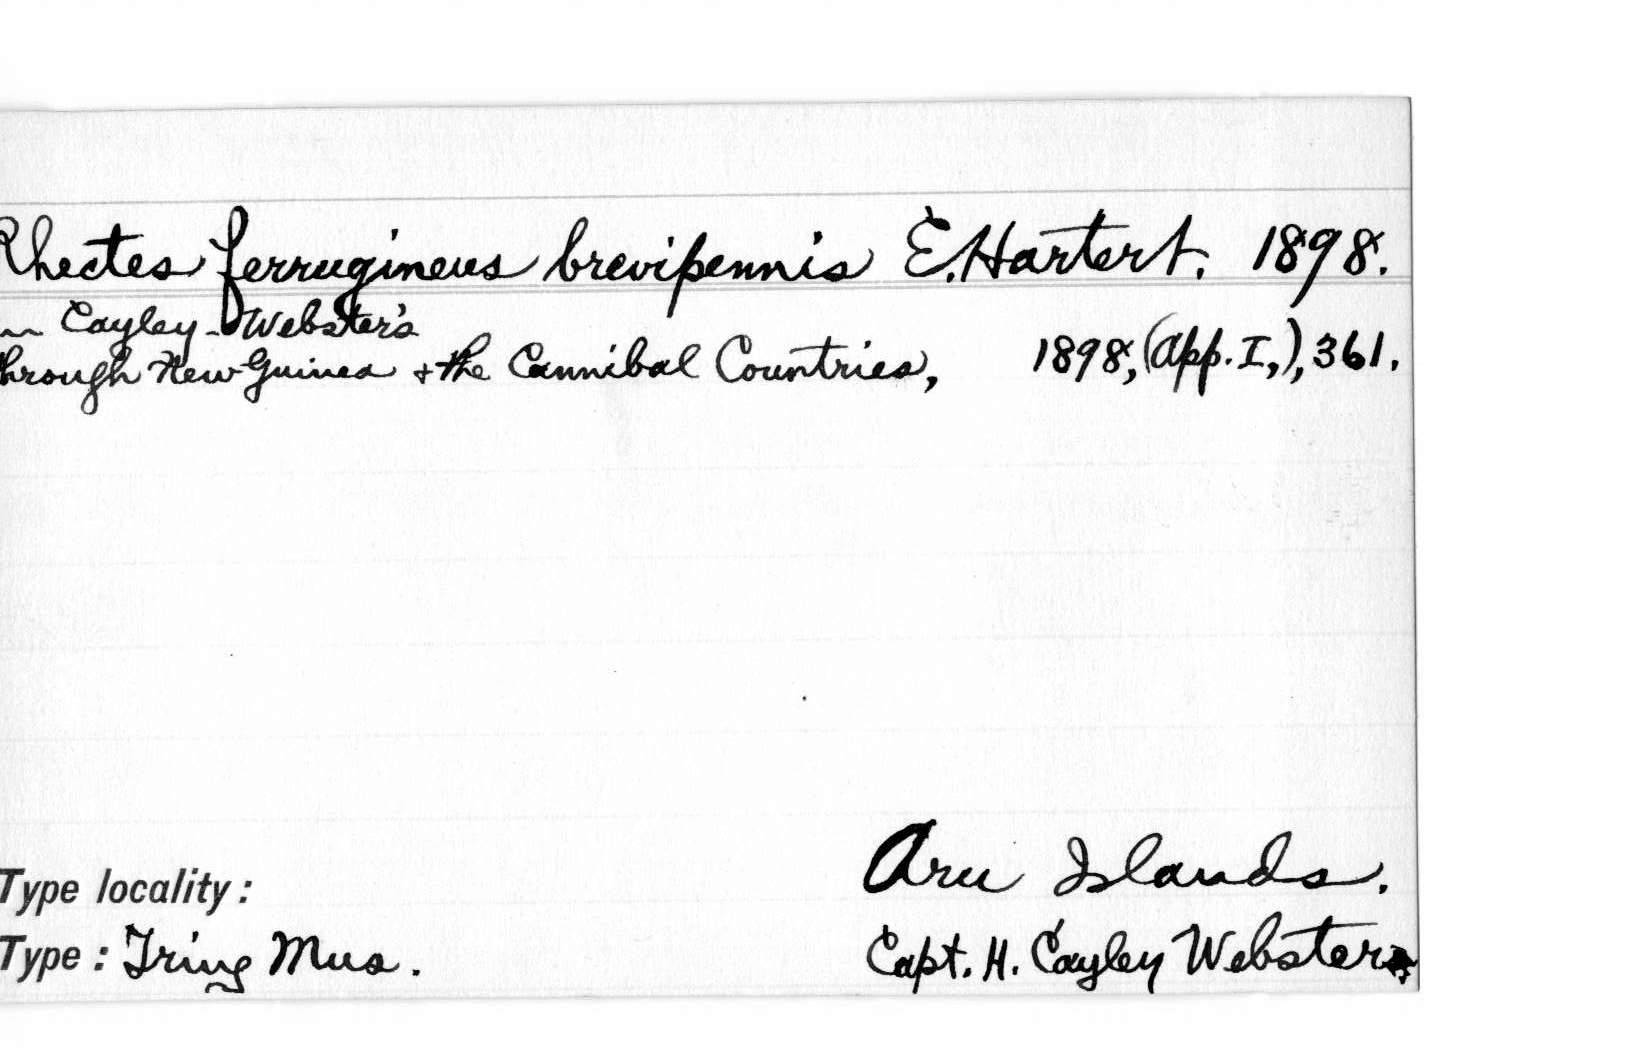 Rhectes ferrugineus brevipennis E. Hartert. 1898.
in Cayley-Webster's
through New Guinea & the Cannibal Countries, 1898, (App. I,), 361.
Aru Islands.
Type locality:
Type: Tring Mus. Capt. H. Cayley Webster.